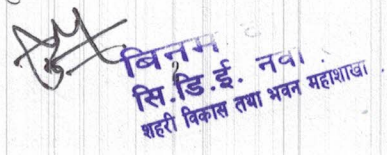 बिनम
सि.डि.ई. नवा
शहरी विकास तथा भवन महाशाखा